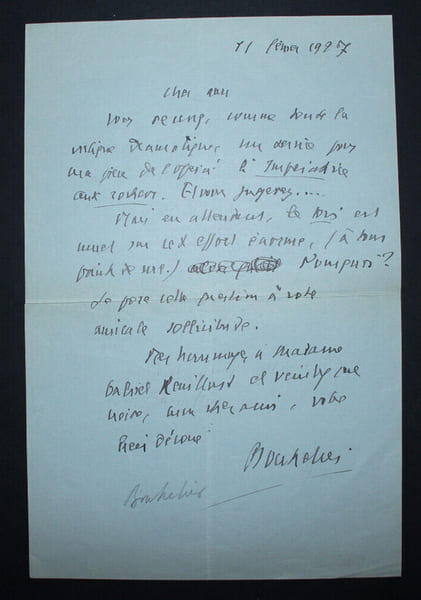 11 février 1927
Cher ami
Vous comme toute la
critique dramatique, un jour
ma pièce de l'opéra L'Impératrice
aux rochers. Et vous jugerez....
Mais en attendant, le est
muet sur cet effort énorme, (à tous
points de vue) Pourquoi?
Je pose cette question à votre
amicale sollicitude.
Mes hommages à Madame
Gabriel Reuillard et veuillez me
croire, mon cher ami, votre
bien dévoué
Bouhélier
Bouhélier